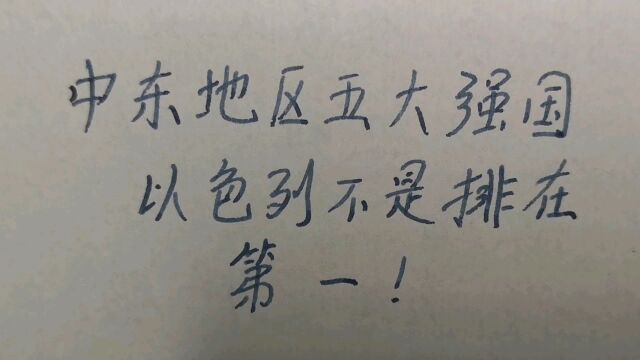 中东地区五大强国
以色列不是排在
第一!